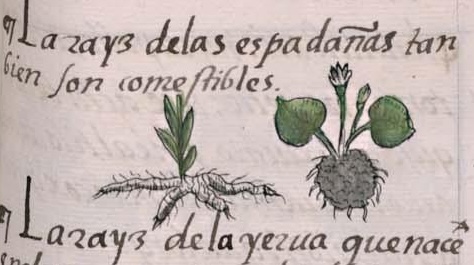 ¶ La rayz delas espadañas tan
bien son comestibles.
¶ La rayz dela yerua que nacē